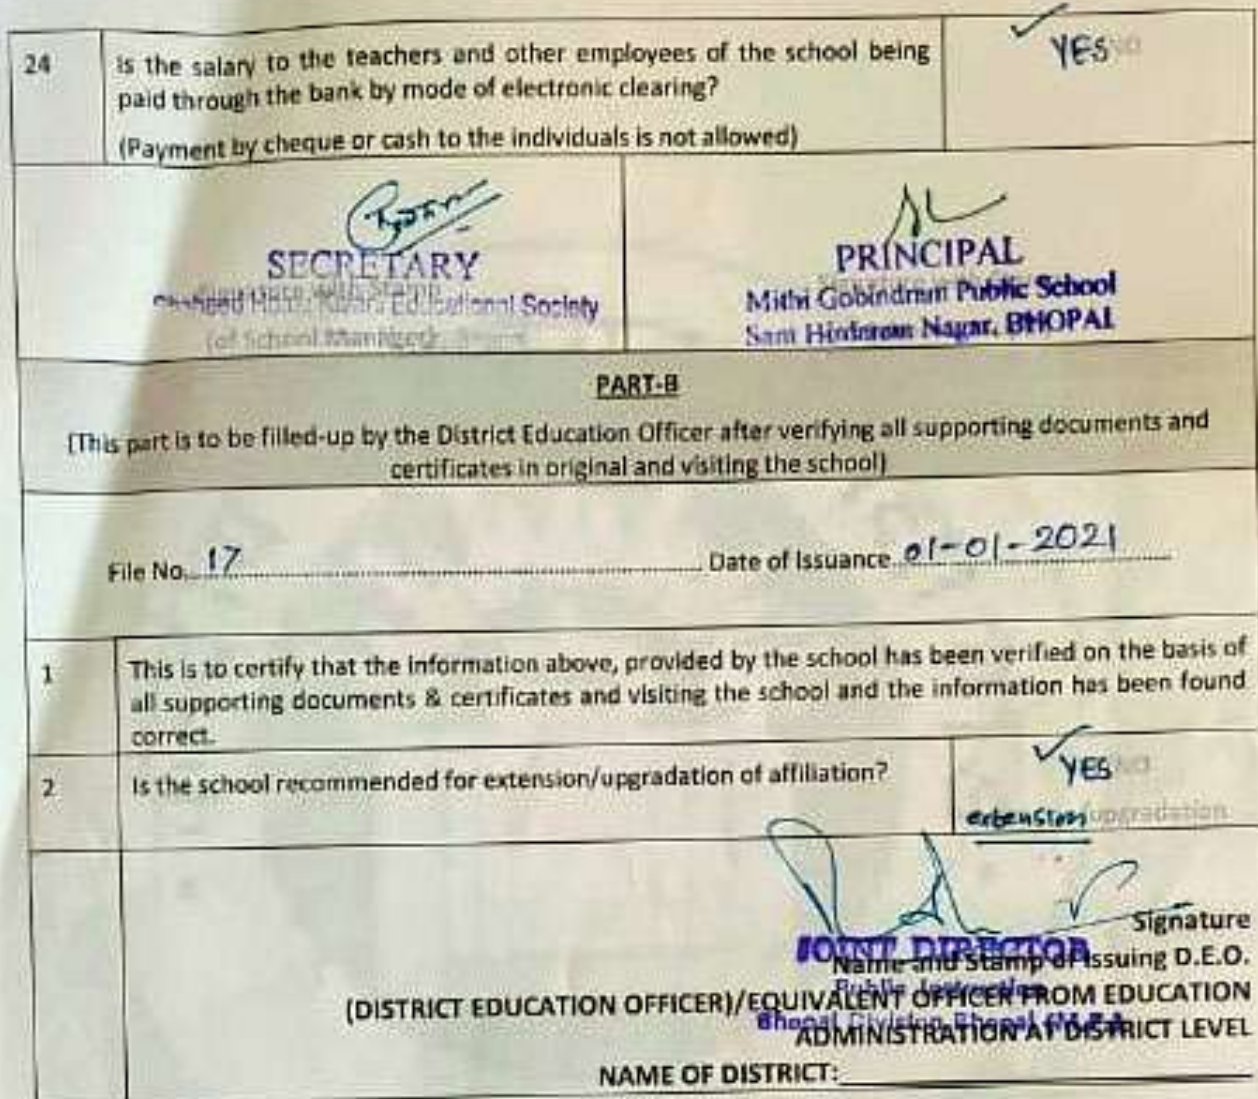 24 is the salary to the teachers and other employees of the school being YES NO
paid through the bank by mode of electronic clearing?
(Payment by cheque or cash to the individuals is not allowed)
SECRETARY
Educational Society
(of School Manager)
PRINCIPAL
Mithi Gobindram Public School
Nagar, BHOPAL
PART-B
(This part is to be filled-up by the District Education Officer after verifying all supporting documents and
certificates in original and visiting the school)
File No. 17 Date of Issuance 01-01-2021
1 This is to certify that the information above, provided by the school has been verified on the basis of
all supporting documents & certificates and visiting the school and the information has been found
correct.
2 Is the school recommended for extension/upgradation of affiliation? YES NO
extension/upgradation
Signature
JOINT DIRECTOR
Name and Stamp of Issuing D.E.O.
Public Instruction
(DISTRICT EDUCATION OFFICER)/EQUIVALENT OFFICER FROM EDUCATION
Bhopal Division Bhopal
ADMINISTRATION AT DISTRICT LEVEL
NAME OF DISTRICT: